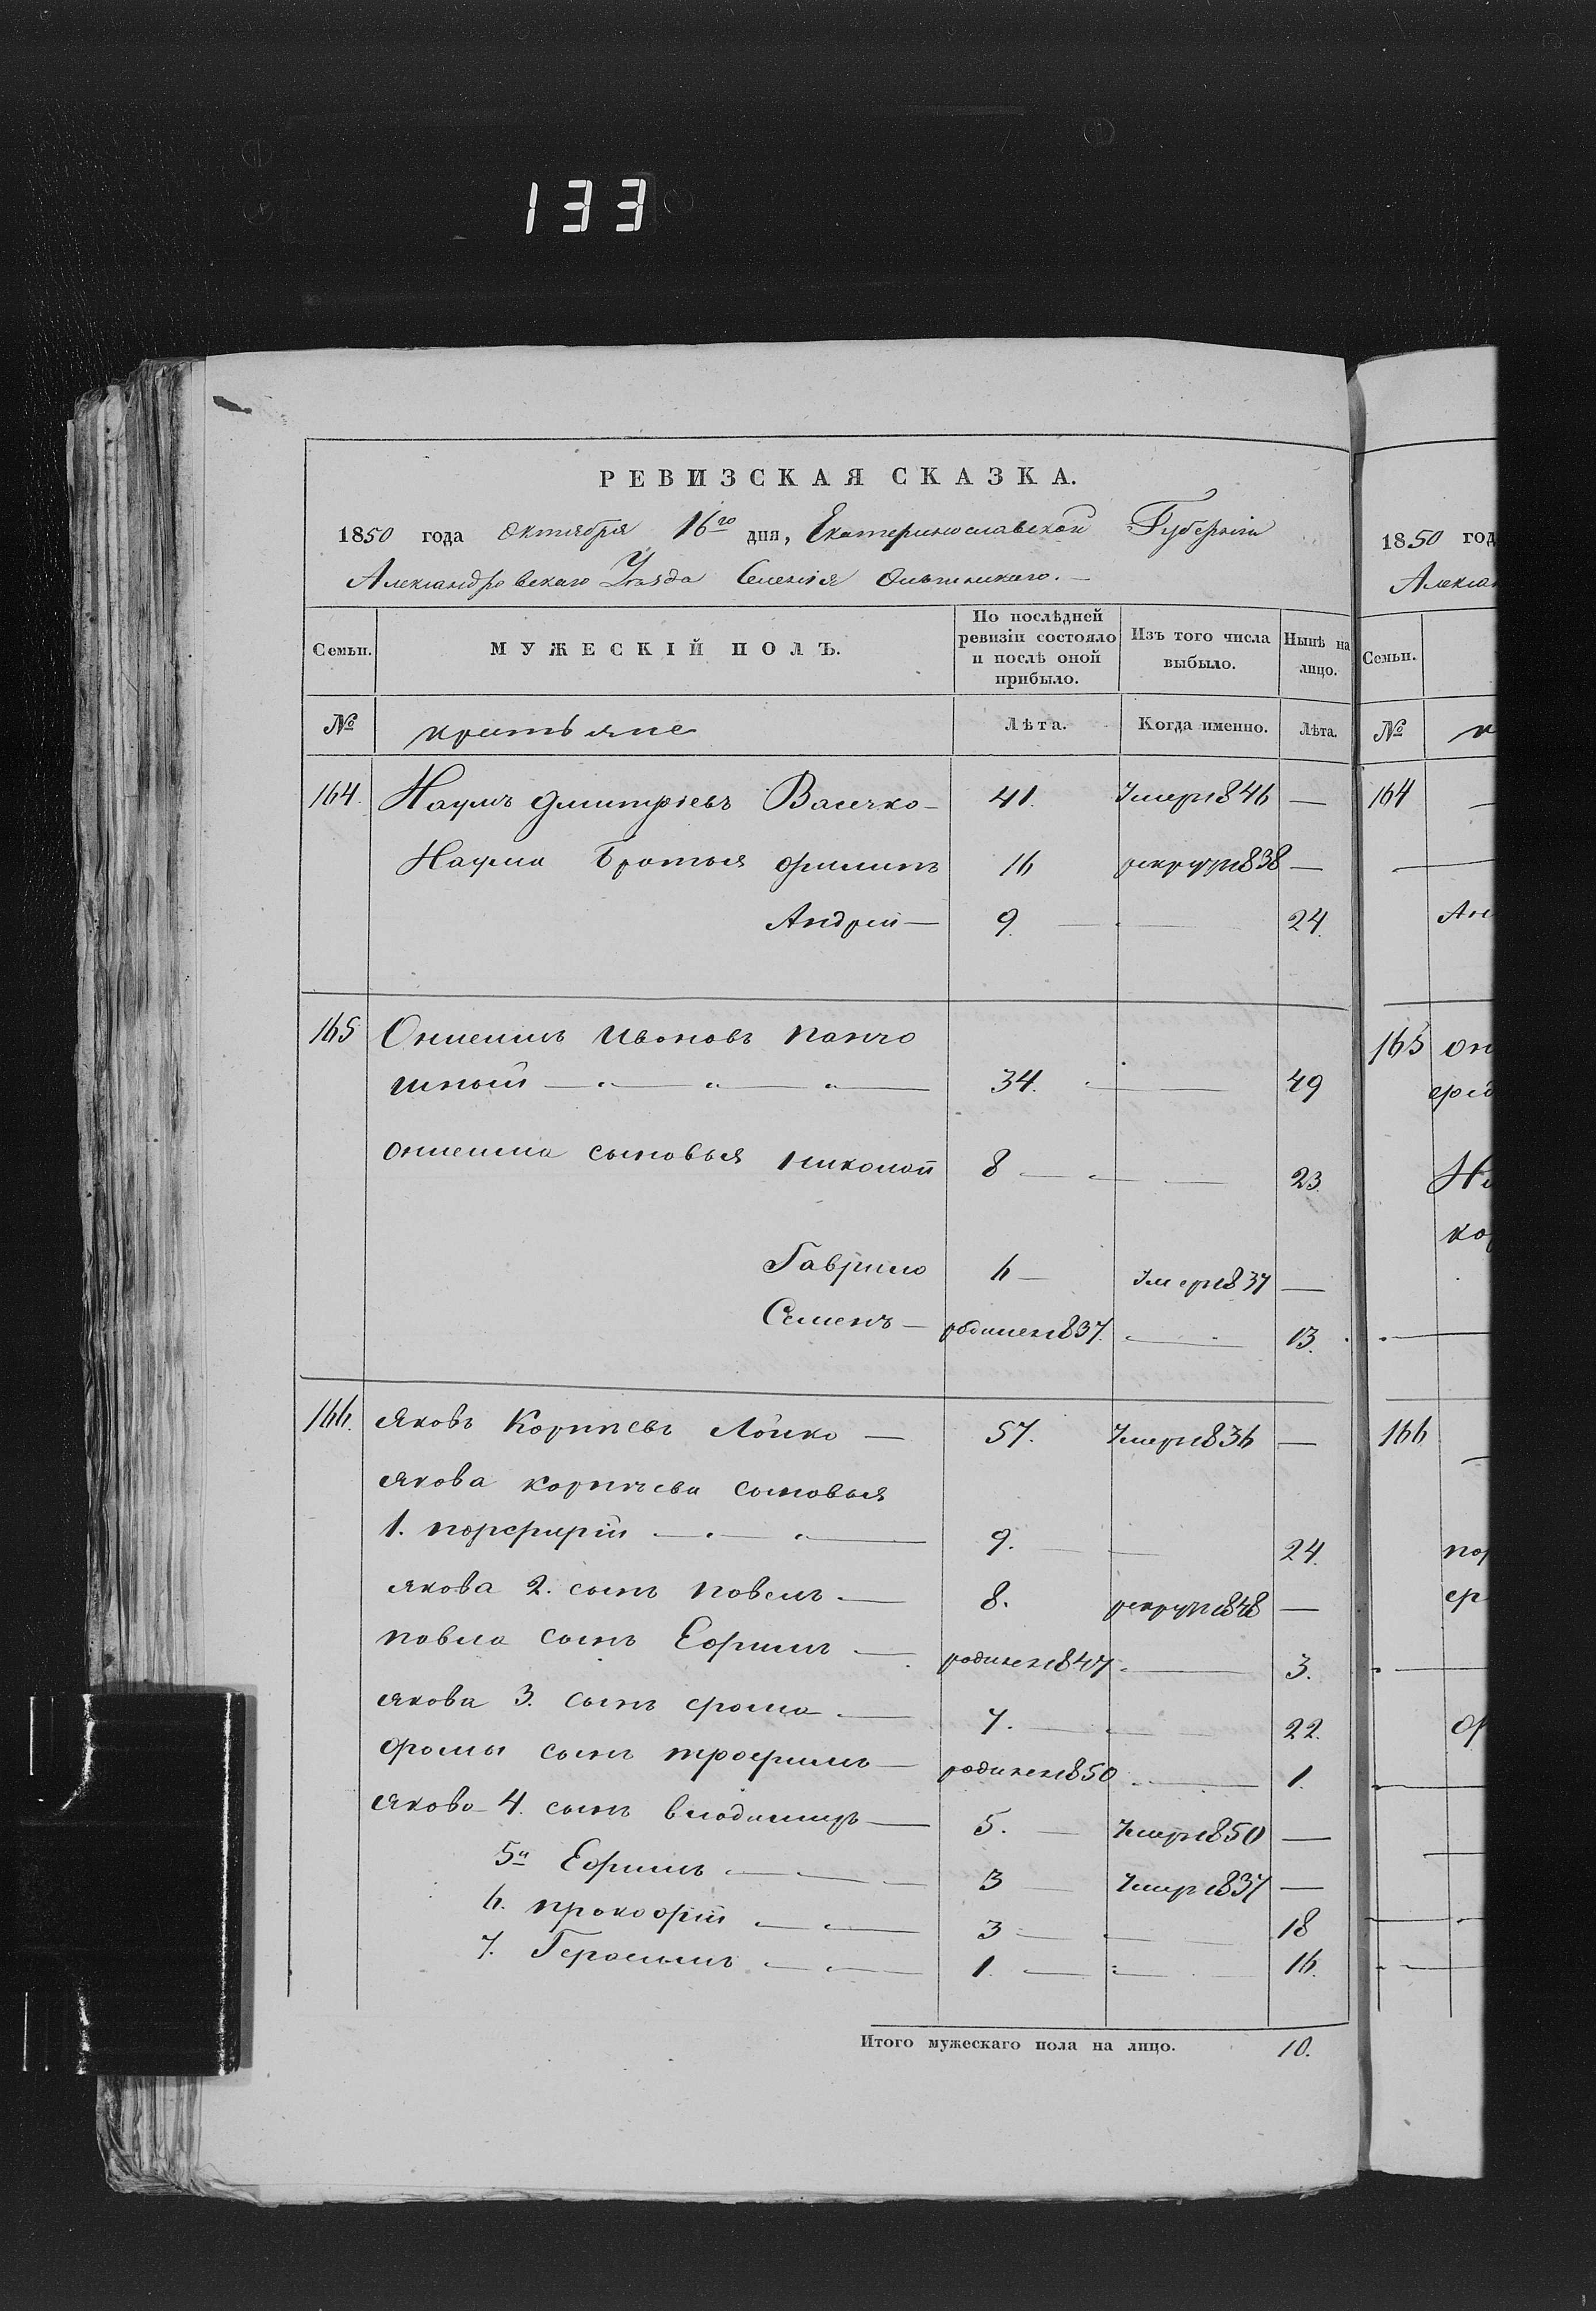 133
РЕВИЗСКАЯ СКАЗКА.
1850 года Октября 16го дня, Екатеринославской Губерніи
Александровскаго Уѣзда Селенія
Семьи. МУЖЕСКІЙ ПОЛЪ. По послѣдней ревизіи состояло и послѣ оной прибыло. Изъ того числа выбыло. Нынѣ на лицо.
№ Лѣта. Когда именно. Лѣта.
164. Наумъ Дмитріевъ Васечко — 41. Умеръ 1846 —
Наума Братья Филипъ 16 рекрут 1838 —
Андрей — 9. — 24.
165 Онисимъ Ивоновъ Панчо
шный — 34. — 49
Онисима сыновья Николай 8 — 23.
Гаврило 6 — Умер 1837 —
Семенъ — родился 1837. — 13.
166. Яковъ Корнѣевъ Лойко — 57. Умеръ 1836 —
Якова Корнѣева сыновья
1. Порфирій — 9. — 24.
Якова 2. сынъ Повелъ — 8. рекрут 1848 —
Повла сынъ Ефимъ — родился 1847 — 3.
Якова 3. сынъ Фома — 7. — 22.
Фомы сынъ Трофимъ — родился 1850 — 1.
Якова 4. сынъ Влодимиръ — 5. — Умеръ 1850 —
5й Ефимъ — 3 — Умеръ 1837 —
6. Прокофій — 3 — 18
7. Геросимъ — 1. — 16.
Итого мужескаго пола на лицо. 10.
1850 год
Алексан
Семьи.
№
164
Ан
165 Он
166